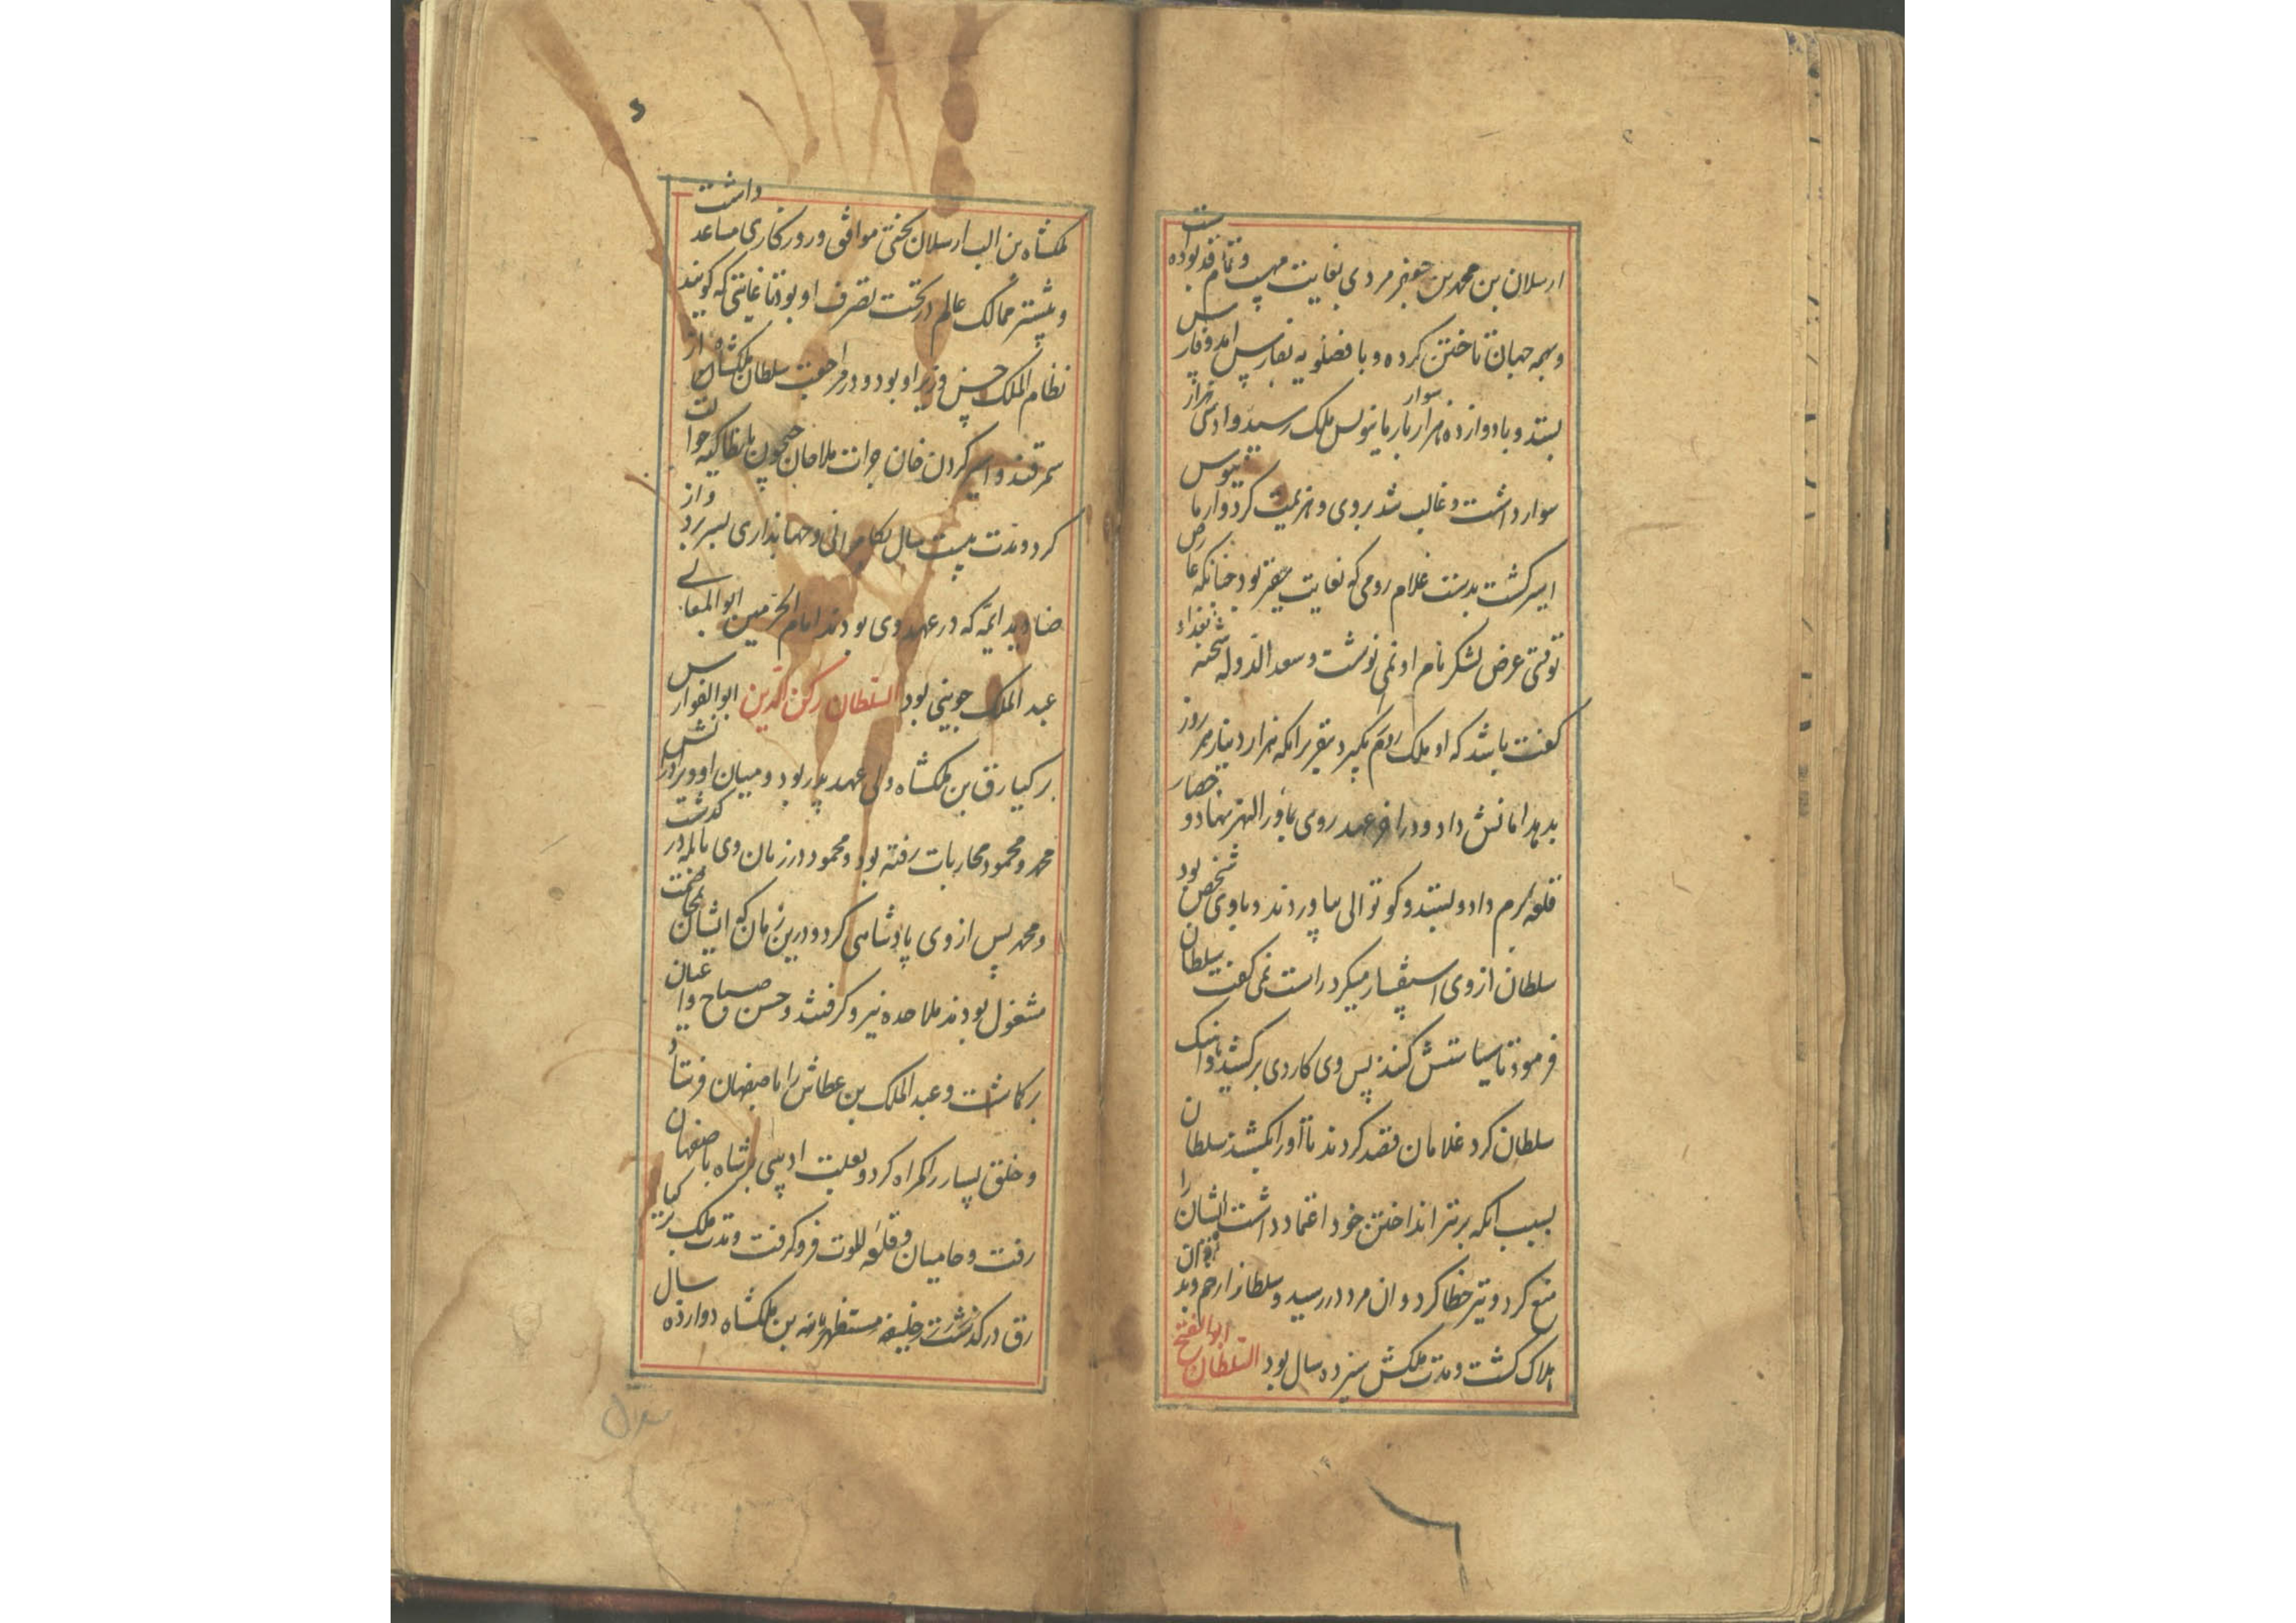 ارسلان بن محمد بن جعفر مردی بغایت مهیب و تمام قد بوده است
و همه جهان تاختن کرده و با فضلویه بفارس امد و فارس
بستد و با دوازده هزار سوار بارمانوس ملک رسید و او سی هزار
سوار داشت و غالب شد بروی و هزیمت کرد و ارمانیوس
اسیر گشت بدست غلام رومی که بغایت حقیر بود چنانکه عارض
توقتی عرض لشکر نام او نمی نوشت و سعد الدوله شحنه بغداد
گفت باشد که او ملک روم بگیرد بقریرانکه هزار دینار هر روز
بدهد امانش داد و در اخر عهد روی بماورا النهر نهاد و حصار
قلعه برم داد و بستد و کوتوالی بیاوردند و باوی شخص بود
سلطان از وی استفسار میکرد راست نمی گفت سلطان
فرمود تا سیاستش کنند پس وی کاردی برکشید و اهنک
سلطان کرد غلامان قصد کردند تا اورا بکشند سلطان
بسبب انکه بر تیر انداختن خود اعتماد داشت ایشان را
منع کرد و تیر خطا کرد و ان مرد در رسید و سلطانرا زخم زد و بدان
هلاک گشت و مدت ملکش سیزده سال بود السلطان ابو الفتح
ملکشاه بن الب ارسلان بختی موافق و روزکاری مساعد داشت
و بیشتر ممالک عالم در تحت تصرف او بود تا غایتی که گویند
نظام الملک حسن وزیر او بود و در مراجعت سلطان ملکشاه از
سمرقند و اسیر کردن خان جرات ملاحان جیحون بانطاکیه حوالت
کرد و مدت بیست سال بکامرانی و جهانداری بسر برد و از
صنادید ائمه که در عهد وی بودند امام الحرمین ابو المعالی
عبد الملک جوینی بود السلطان رکن الدین ابو الفوارس
برکیارق بن ملکشاه ولی عهد پدر بود و میان او و برادرانش
محمد و محمود محاربات رفته بود و محمود در زمان وی بابله در گذشت
و محمد پس از وی پادشاهی کرد و درین زمان که ایشان بمخاصمت
مشغول بودند ملاحده نیرو گرفتند و حسن صباح داعیان
برکماشت و عبد الملک بن عطاش را باصفهان فرستاد
و خلق بسیار را گمراه کرد و بعلبت ادیبی بر شاه باصفهان
رفت و حامیان و قلعه للوت فرو گرفت و مدت ملک برکیا
رق در گذشت خلیفه مستظهر بالله بن ملکشاه دوازده سال